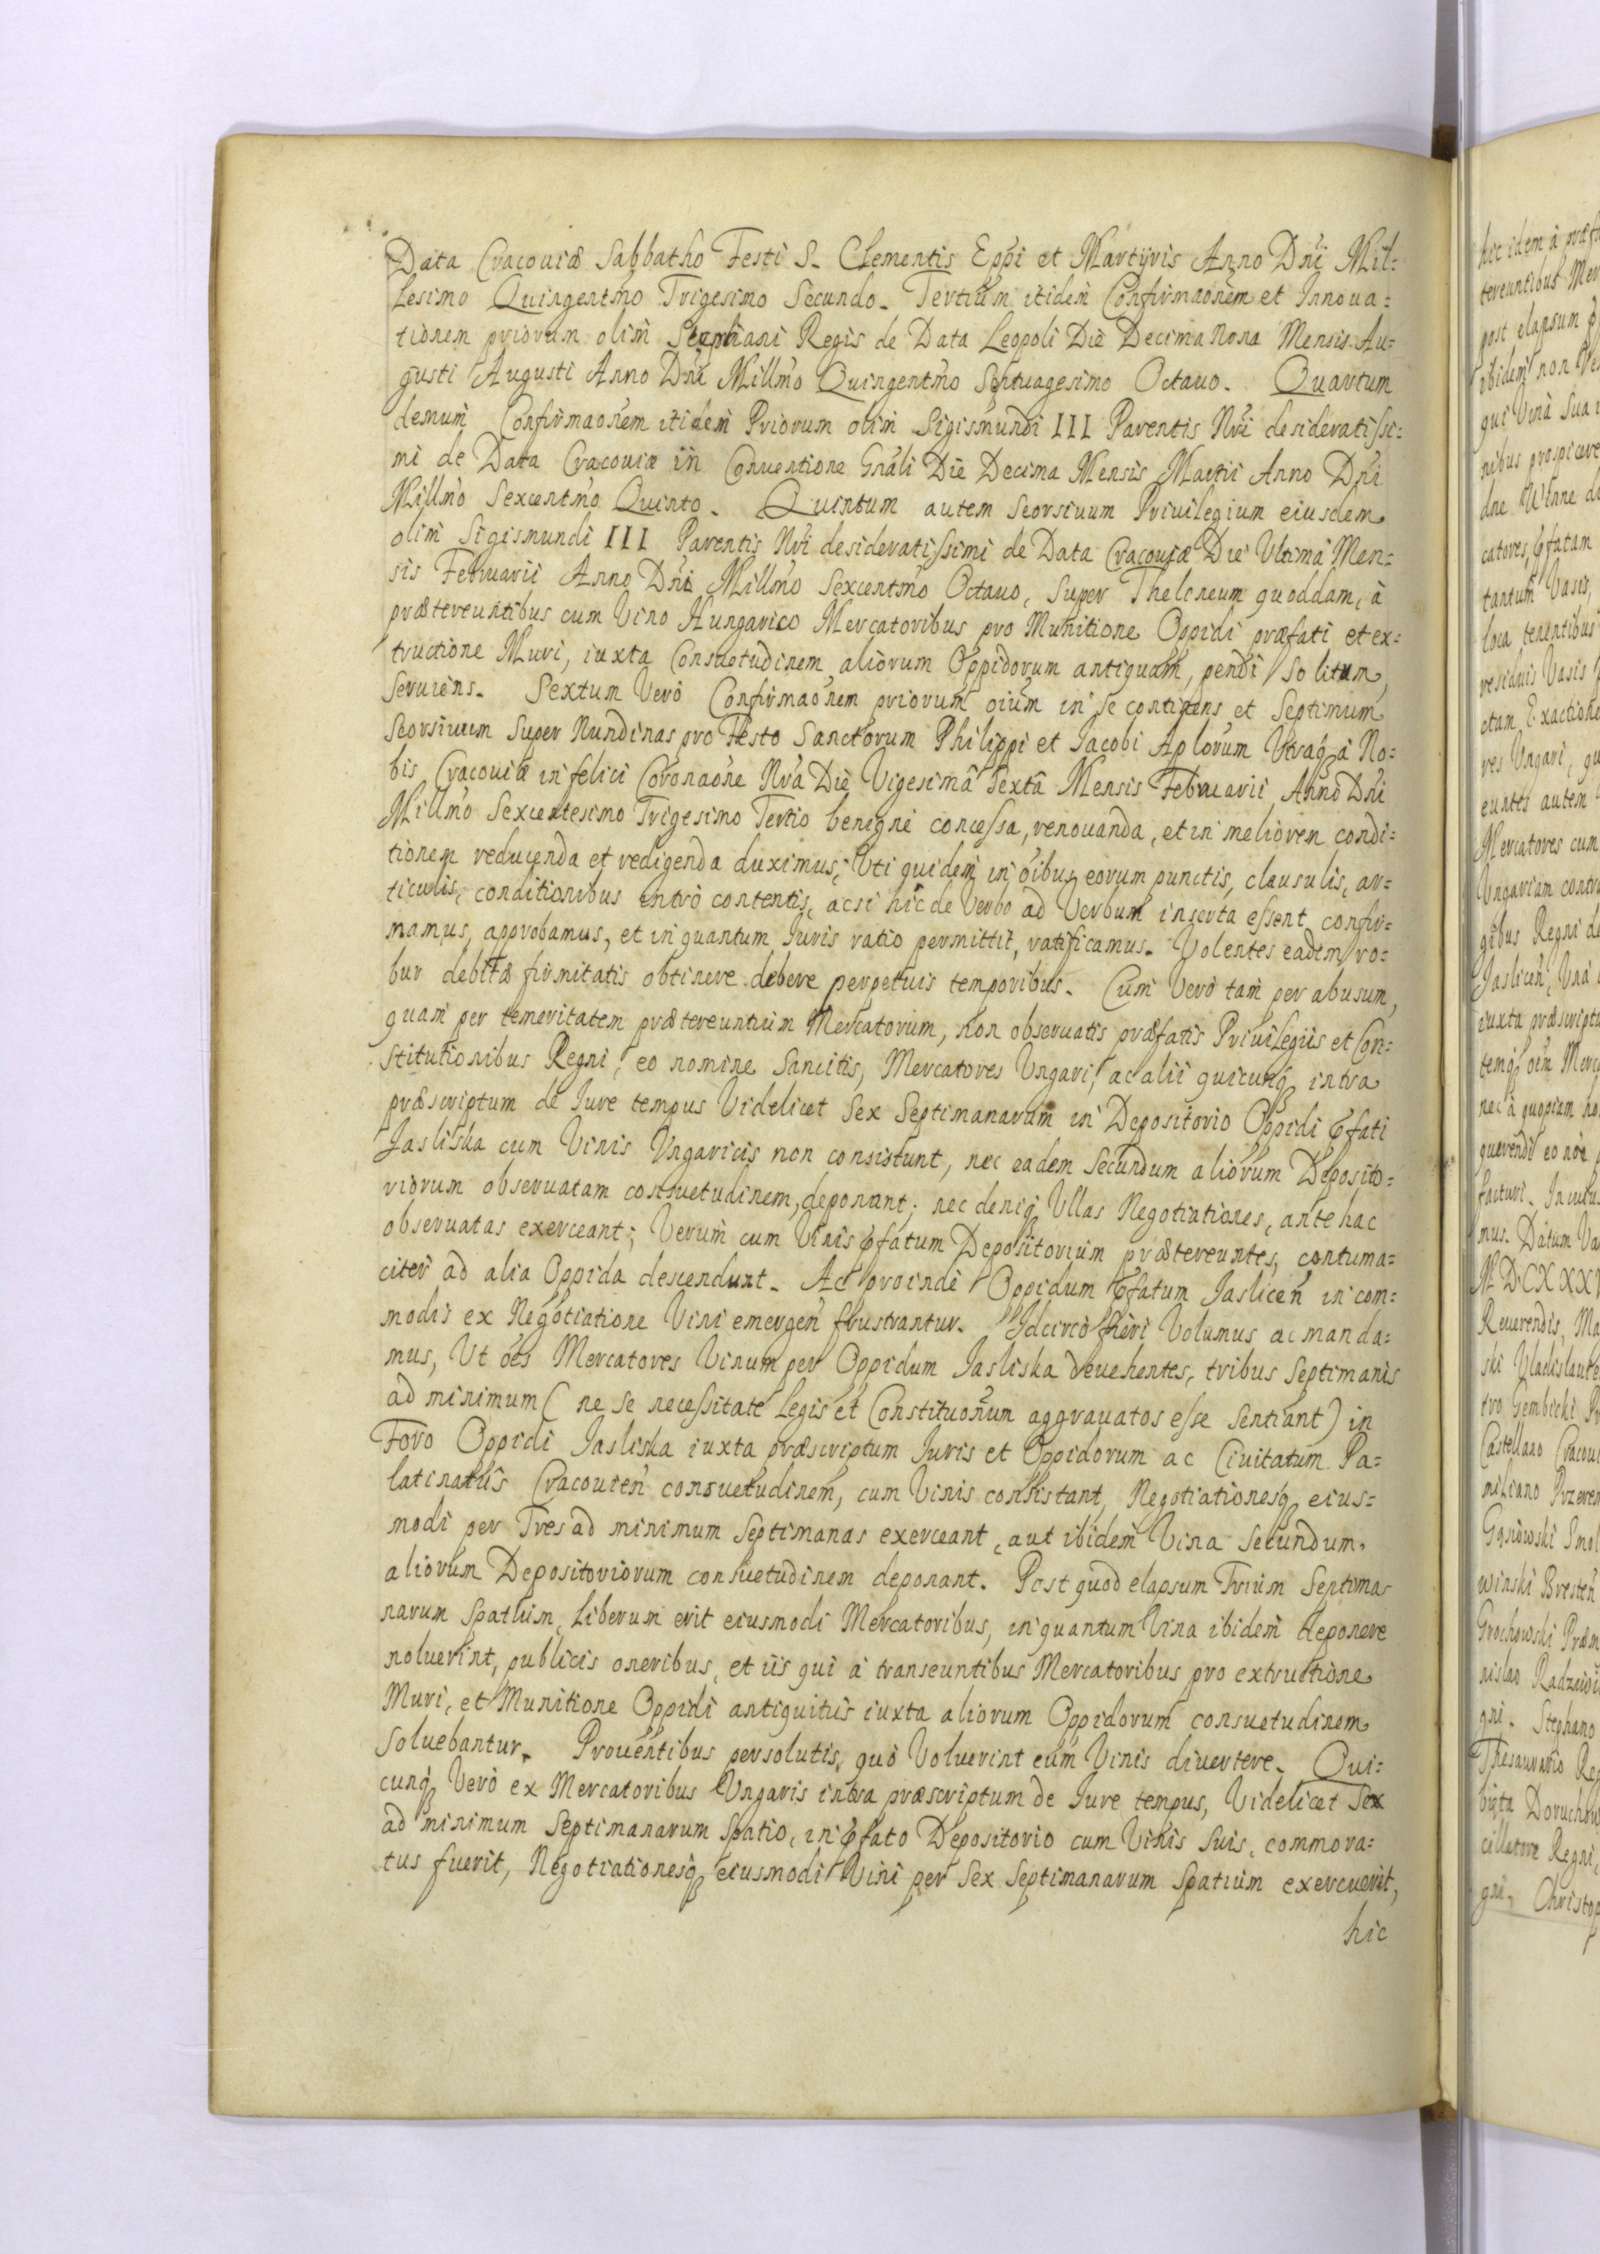 Data Cracouiæ Sabbatho Festi S. Clementis Eppi et Martÿris Anno Dni Mil=
lesimo Quingentmo Trigesimo Secundo. Tertium itidem Confirmaonem et Innoua=
tionem priorum olim Stephani Regis de Data Leopoli Die Decima Nona Mensis Au=
gusti Augusti Anno Dni Millmo Quingentmo Septuagesimo Octauo. Quartum
demum Confirmaonem itidem Priorum olim Sigismundi III Parentis Nri desideratissi=
mi de Data Cracouiæ in Conuentione Gnali Die Decima Mensis Martii Anno Dni
Millmo Sexcentmo Quinto. Quintum autem Seorsiuum Priuilegium eiusdem
olim Sigismundi III Parentis Nri desideratissimi de Data Cracouiæ Die Ultima Men=
sis Februarii Anno Dni Millmo Sexcentmo Octauo, Super Theloneum quoddam, à
prætereuntibus cum Vino Hungarico Mercatoribus pro Munitione Oppidi præfati et ex=
tructione Muri, iuxta Consuetudinem aliorum Oppidorum antiquam, pendi Solitum,
Seruiens. Sextum Verò Confirmaonem priorum oium in se continens et Septimum
Seorsiuum Super Nundinas pro Festo Sanctorum Philippi et Jacobi Aplorum Utraq à No=
bis Cracouiæ in felici Coronaone Nra Die Vigesimâ Sextâ Mensis Februarii Anno Dni
Millmo Sexcentesimo Trigesimo Tertio benigne concessa, renouanda, et in meliorem condi=
tionem reducenda et redigenda duximus; Uti quidem in oibus eorum punctis, clausulis, ar=
ticulis, conditionibus intrò contentis, acsi hîc de Verbo ad Verbum inserta essent confir=
mamus, approbamus, et in quantum Juris ratio permittit, ratificamus. Volentes eadem ro=
bur debitæ firmitatis obtinere debere perpetuis temporibus. Cum Verò tam per abusum,
quam per temeritatem prætereuntium Mercatorum, non obseruatis præfatis Priuilegiis et Con=
stitutionibus Regni, eo nomine Sancitis, Mercatores Ungari, ac alii quicunq intra
præscriptum de Jure tempus Videlicet Sex Septimanarum in Depositorio Oppidi pfati
Jasliska cum Vinis Ungaricis non consistunt, nec eadem secundum aliorum Deposito=
riorum obseruatam consuetudinem, deponant; nec deniq Ullas Negotiationes, ante hac
obseruatas exerceant; Verum cum Vinis pfatum Depositorium prætereuntes, contuma=
citer ad alia Oppida descendunt. Ac proinde Oppidum pfatum Jaslicen in com=
modis ex Negotiatione Vini emergen frustrantur. Idcirco fieri Volumus ac manda=
mus, Ut oes Mercatores Vinum per Oppidum Jasliska deuehentes, tribus Septimanis
ad minimum (ne se necessitate Legis et Constituonum aggrauatos esse Sentiant) in
Foro Oppidi Jasliska iuxta præscriptum Juris et Oppidorum ac Ciuitatum Pa=
latinatûs Cracouien consuetudinem, cum Vinis consistant, Negotiationesq eius=
modi per Tres ad minimum Septimanas exerceant, aut ibidem Vina Secundum
aliorum Depositoriorum consuetudinem deponant. Post quod elapsum Trium Septima=
narum Spatium, Liberum erit eiusmodi Mercatoribus, in quantum Vina ibidem deponere
noluerint, publicis oneribus, et iis qui à transeuntibus Mercatoribus pro extructione
Muri, et Munitione Oppidi antiquitus iuxta aliorum Oppidorum consuetudinem
Soluebantur. Prouentibus persolutis, quò Voluerint cum Vinis diuertere. Qui=
cunq Verò ex Mercatoribus Ungaris intra præscriptum de Jure tempus, Videlicet Sex
ad minimum Septimanarum Spatio, in pfato Depositorio cum Vinis Suis, commora=
tus fuerit, Negotiationesq eiusmodi Vini per Sex Septimanarum Spatium exercuerit,
hic